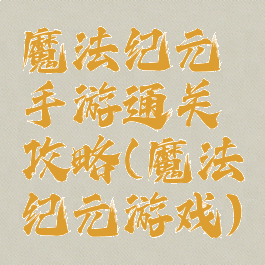 魔法纪元
手游通关
攻略(魔法
纪元游戏)